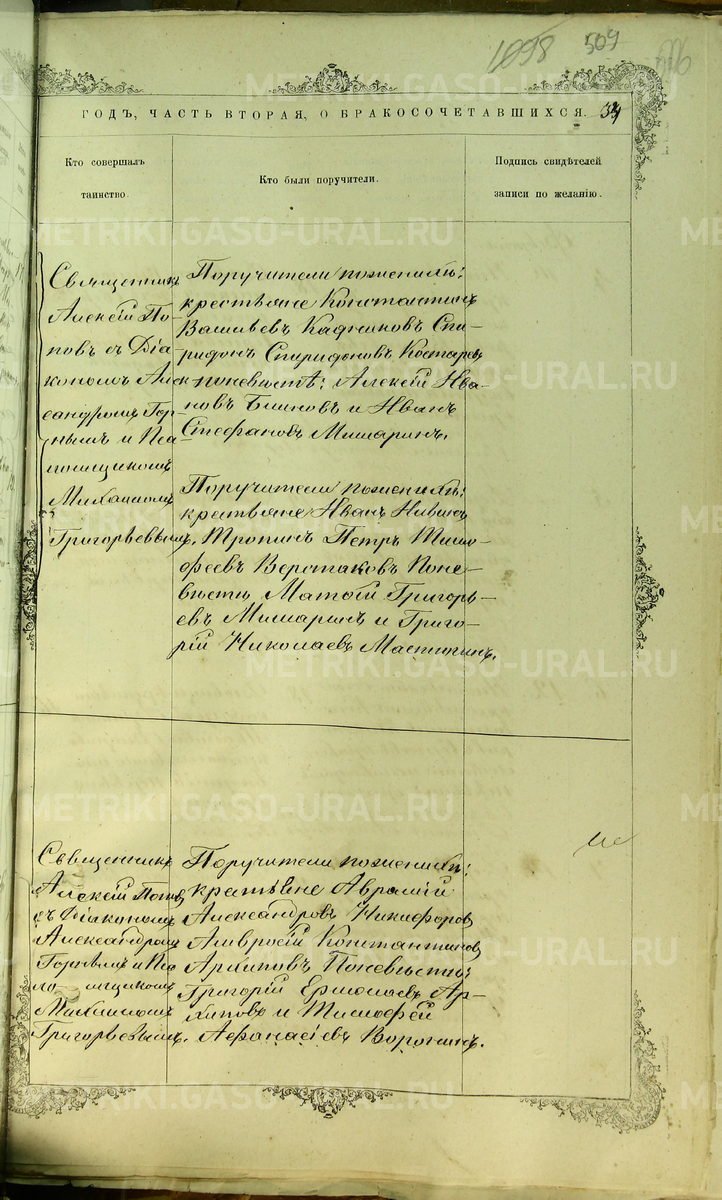 1098 509
ГОДЪ, ЧАСТЬ ВТОРАЯ, О БРАКОСОЧЕТАВШИХСЯ. 34
Кто совершалъ
таинство.
Кто были поручители.
Подпись свидѣтелей
записи по желанію.
Священникъ
Алексій По-
повъ съ Діа-
кономъ Алек-
сандромъ Гор-
нымъ и Пса
ломщикомъ
Михаиломъ
Григорьевымъ.
Поручители по женихѣ:
крестьяне Константинъ
Васильевъ Кадниковъ Спи-
ридонъ Спиридоновъ Костаревъ
по невѣстѣ: Алексѣй Ива-
новъ Блиновъ и Иванъ
Стефановъ Мишаринъ.
Поручители по женихѣ:
крестьяне Иванъ
Тропинъ Петръ Тимо-
феевъ Верстаковъ По не-
вѣстѣ Матѳій Григорь-
евъ Мишаринъ и Григо-
рій Николаевъ
Священникъ
Алексій Поповъ
съ Діакономъ
Александромъ
Горнымъ и Пса
ломщикомъ
Михаиломъ
Григорьевымъ.
Поручители по женихѣ:
крестьяне Аврамій
Александровъ Никифоровъ
Амвросій Константиновъ
Архиповъ По невѣстѣ:
Григорій Ермолаевъ Ар-
хиповъ и Тимофей
Афанасіевъ Воронинъ.
METRIKI.GASO-URAL.RU